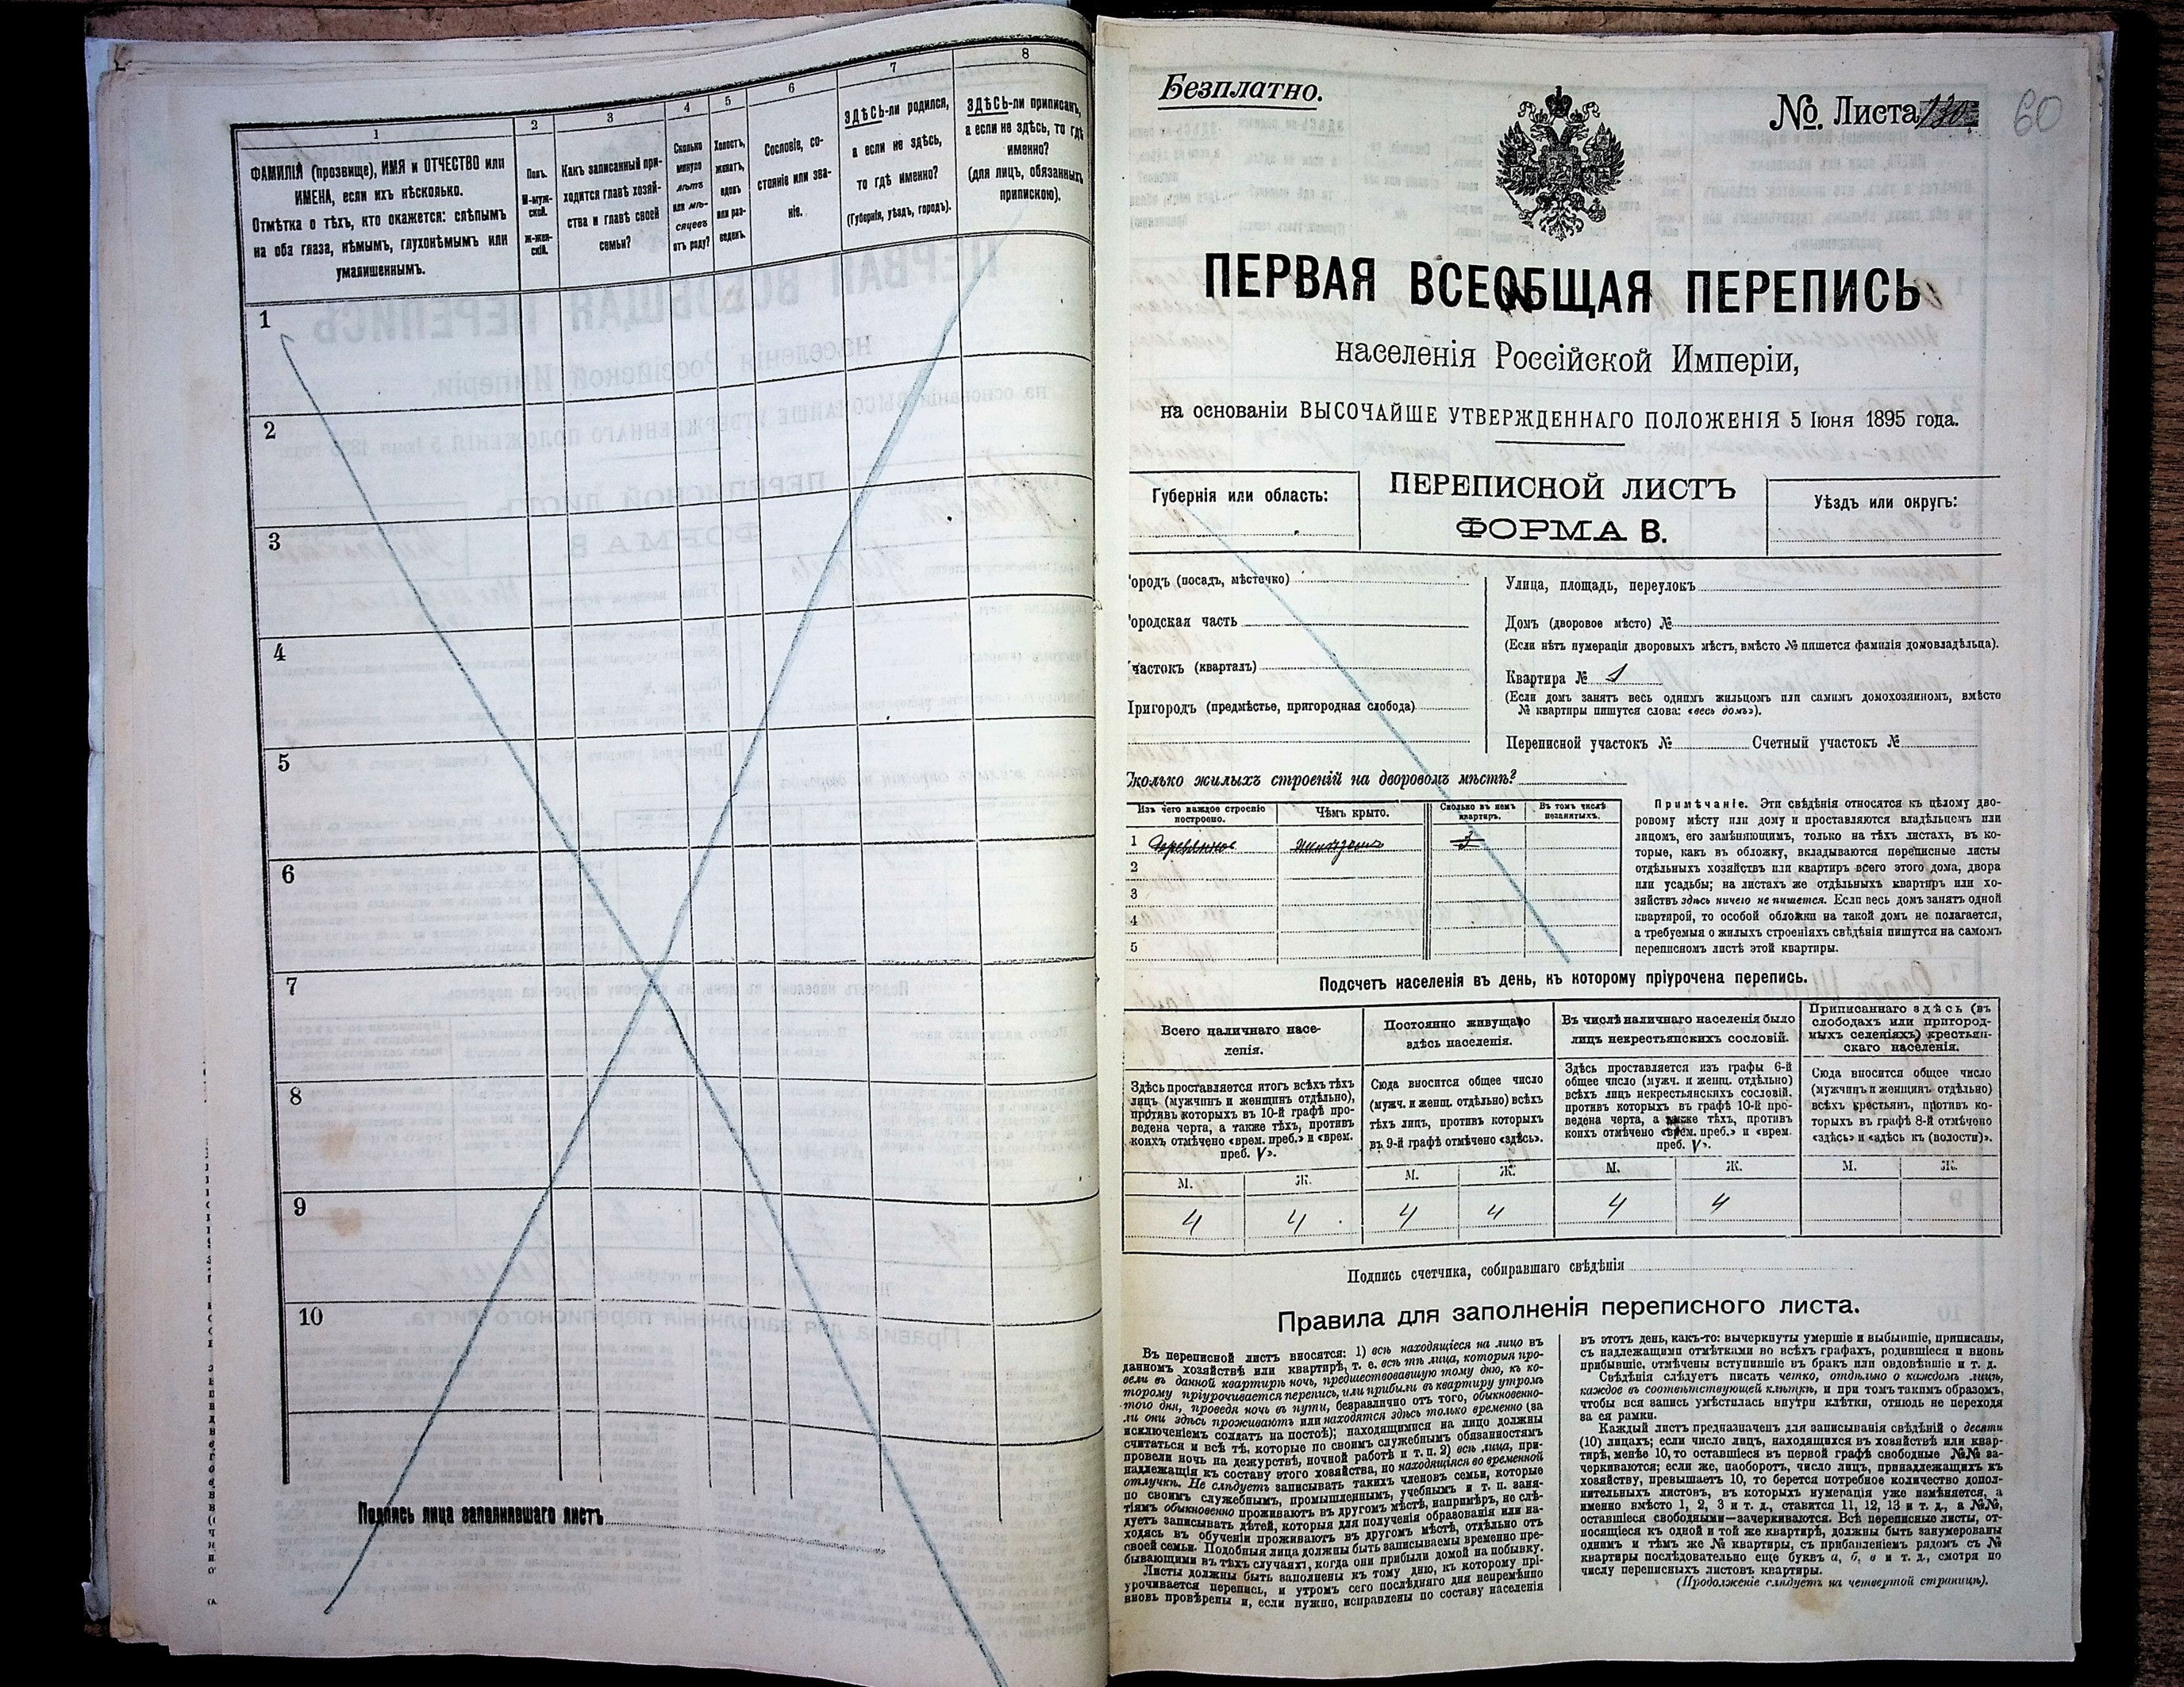 1
2
3
4
5
6
7
8
ФАМИЛІЯ (прозвище), ИМЯ и ОТЧЕСТВО или
ИМЕНА, если ихъ нѣсколько.
Отмѣтка о тѣхъ, кто окажется: слѣпымъ
на оба глаза, нѣмымъ, глухонѣмымъ или
умалишеннымъ.
Полъ.
М-муж-
ской.
Ж-жен-
скій.
Какъ записанный при-
ходится главѣ хозяй-
ства и главѣ своей
семьи?
Сколько
минуло
лѣтъ
или мѣ-
сяцевъ
отъ роду?
Холостъ,
женатъ,
вдовъ
или раз-
веденъ.
Сословіе, со-
стояніе или зва-
ніе.
ЗДѢСЬ-ли родился,
а если не здѣсь,
то гдѣ именно?
(Губернія, уѣздъ, городъ).
ЗДѢСЬ-ли приписанъ,
а если не здѣсь, то гдѣ
именно?
(для лицъ, обязанныхъ
припискою).
1
2
3
4
5
6
7
8
9
10
Подпись лица заполнившаго листъ
Безплатно.
№ Листа
60
ПЕРВАЯ ВСЕОБЩАЯ ПЕРЕПИСЬ
населенія Россійской Имперіи,
на основаніи ВЫСОЧАЙШЕ УТВЕРЖДЕННАГО ПОЛОЖЕНІЯ 5 Іюня 1895 года.
Губернія или область:
ПЕРЕПИСНОЙ ЛИСТЪ
ФОРМА В.
Уѣздъ или округъ:
ородъ (посадъ, мѣстечко)
ородская часть
частокъ (кварталъ)
Пригородъ (предмѣстье, пригородная слобода)
Улица, площадь, переулокъ
Домъ (дворовое мѣсто) №
(Если нѣтъ нумераціи дворовыхъ мѣстъ, вмѣсто № пишется фамилія домовладѣльца).
Квартира № 1
(Если домъ занятъ весь однимъ жильцомъ или самимъ домохозяиномъ, вмѣсто
№ квартиры пишутся слова: «весь домъ»).
Переписной участокъ № Счетный участокъ №
Сколько жилыхъ строеній на дворовомъ мѣстѣ?
Изъ чего каждое строеніе
построено.
Чѣмъ крыто.
Сколько въ немъ
квартиръ.
Въ томъ числѣ
незанятыхъ.
1 Деревянное
2
3
4
5
Примѣчаніе. Эти свѣдѣнія относятся къ цѣлому дво-
ровому мѣсту или дому и проставляются владѣльцемъ или
лицомъ, его замѣняющимъ, только на тѣхъ листахъ, въ ко-
торые, какъ въ обложку, вкладываются переписные листы
отдѣльныхъ хозяйствъ или квартиръ всего этого дома, двора
или усадьбы; на листахъ же отдѣльныхъ квартиръ или хо-
зяйствъ здѣсь ничего не пишется. Если весь домъ занятъ одной
квартирой, то особой обложки на такой домъ не полагается,
а требуемыя о жилыхъ строеніяхъ свѣдѣнія пишутся на самомъ
переписномъ листѣ этой квартиры.
Подсчетъ населенія въ день, къ которому пріурочена перепись.
Всего наличнаго насе-
ленія.
Постоянно живущаго
здѣсь населенія.
Въ числѣ наличнаго населенія было
лицъ некрестьянскихъ сословій.
Приписаннаго здѣсь (въ
слободахъ или пригород-
ныхъ селеніяхъ) крестьян-
скаго населенія.
Здѣсь проставляется итогъ всѣхъ тѣхъ
лицъ (мужчинъ и женщинъ отдѣльно),
противъ которыхъ въ 10-й графѣ про-
ведена черта, а также тѣхъ, противъ
коихъ отмѣчено «врем. преб.» и «врем.
преб. V».
Сюда вносится общее число
(мужч. и женщ. отдѣльно) всѣхъ
тѣхъ лицъ, противъ которыхъ
въ 9-й графѣ отмѣчено «здѣсь».
Здѣсь проставляется изъ графы 6-й
общее число (мужч. и женщ. отдѣльно)
всѣхъ лицъ некрестьянскихъ сословій,
противъ которыхъ въ графѣ 10-й про-
ведена черта, а также тѣхъ, противъ
коихъ отмѣчено «врем. преб.» и «врем.
преб. V».
Сюда вносится общее число
(мужчинъ и женщинъ отдѣльно)
всѣхъ крестьянъ, противъ ко-
торыхъ въ графѣ 8-й отмѣчено
«здѣсь» и «здѣсь къ (волости)».
М. Ж. М. Ж. М. Ж. М. Ж.
4 4 4 4 4 4
Подпись счетчика, собиравшаго свѣдѣнія
Правила для заполненія переписного листа.
Въ переписной листъ вносятся: 1) всѣ находящіеся на лицо въ
данномъ хозяйствѣ или квартирѣ, т. е. всѣ тѣ лица, которыя про-
вели въ данной квартирѣ ночь, предшествовавшую тому дню, къ ко-
торому пріурочивается перепись, или прибыли въ квартиру утромъ
того дня, проведя ночь въ пути, безразлично отъ того, обыкновенно-
ли они здѣсь проживаютъ или находятся здѣсь только временно (за
исключеніемъ солдатъ на постоѣ); находящимися на лицо должны
считаться и всѣ тѣ, которые по своимъ служебнымъ обязанностямъ
провели ночь на дежурствѣ, ночной работѣ и т. п. 2) всѣ лица, при-
надлежащія къ составу этого хозяйства, но находящіяся во временной
отлучкѣ. Не слѣдуетъ записывать такихъ членовъ семьи, которые
по своимъ служебнымъ, промышленнымъ, учебнымъ и т. п. заня-
тіямъ обыкновенно проживаютъ въ другомъ мѣстѣ, напримѣръ, не слѣ-
дуетъ записывать дѣтей, которыя для полученія образованія или на-
ходясь въ обученіи проживаютъ въ другомъ мѣстѣ, отдѣльно отъ
своей семьи. Подобныя лица должны быть записываемы временно пре-
бывающими въ тѣхъ случаяхъ, когда они прибыли домой на побывку.
Листы должны быть заполнены къ тому дню, къ которому прі-
урочивается перепись, и утромъ сего послѣдняго дня непремѣнно
вновь провѣрены и, если нужно, исправлены по составу населенія
въ этотъ день, какъ-то: вычеркнуты умершіе и выбывшіе, приписаны,
съ надлежащими отмѣтками во всѣхъ графахъ, родившіеся и вновь
прибывшіе, отмѣчены вступившіе въ бракъ или овдовѣвшіе и т. д.
Свѣдѣнія слѣдуетъ писать четко, отдѣльно о каждомъ лицѣ,
каждое въ соотвѣтствующей клѣткѣ, и при томъ такимъ образомъ,
чтобы вся запись умѣстилась внутри клѣтки, отнюдь не переходя
за ея рамки.
Каждый листъ предназначенъ для записыванія свѣдѣній о десяти
(10) лицахъ; если число лицъ, находящихся въ хозяйствѣ или квар-
тирѣ, менѣе 10, то оставшіеся въ первой графѣ свободные №№ за-
черкиваются; если же, наоборотъ, число лицъ, принадлежащихъ къ
хозяйству, превышаетъ 10, то берется потребное количество допол-
нительныхъ листовъ, въ которыхъ нумерація уже измѣняется, а
именно вмѣсто 1, 2, 3 и т. д., ставится 11, 12, 13 и т. д., а №№,
оставшіеся свободными—зачеркиваются. Всѣ переписные листы, от-
носящіеся къ одной и той же квартирѣ, должны быть занумерованы
однимъ и тѣмъ же № квартиры, съ прибавленіемъ рядомъ съ №
квартиры послѣдовательно еще буквъ а, б, в и т. д., смотря по
числу переписныхъ листовъ квартиры.
(Продолженіе слѣдуетъ на четвертой страницѣ).